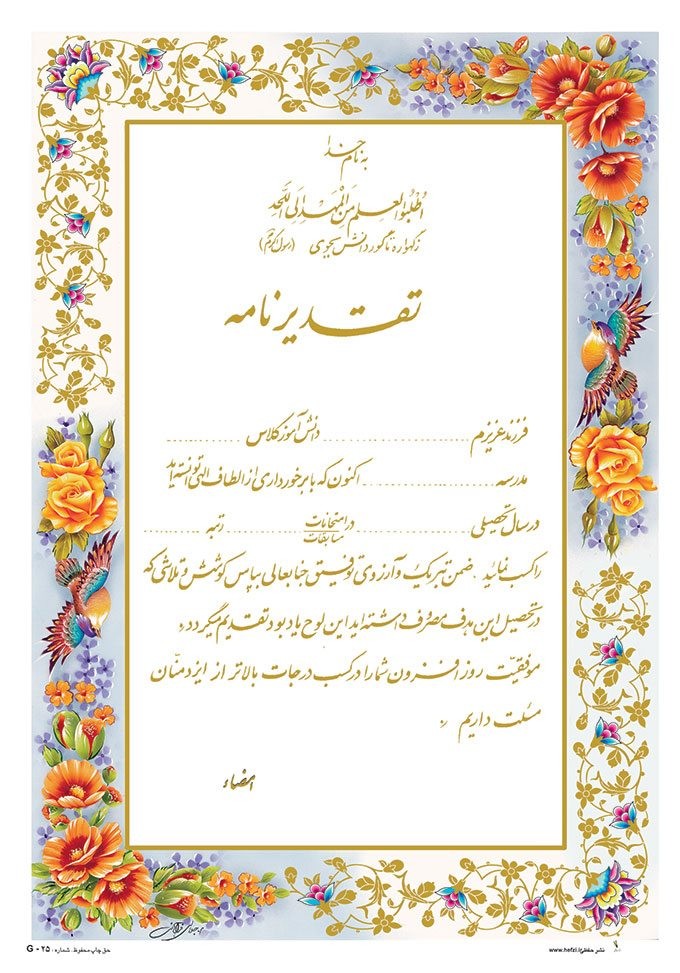 به نام خدا
اُطْلُبُوا العِلم مِنَ الْمَهْدِ اِلَی اللَّحَدِ
زگهواره تا گور دانش بجوی (رسول اکرم)
تقدیرنامه
فرزند عزیزم ........................ دانش آموز کلاس ............
مدرسه ........................ اکنون که با برخورداری از الطاف الهی توانسته اید
در سال تحصیلی ........................ در امتحانات مسابقات ............ رتبه ............
را کسب نمائید . ضمن تبریک و آرزوی توفیق جنابعالی بپاس کوشش و تلاشی که
در تحصیل این هدف مصروف داشته اید این لوح یادبود تقدیم میگردد .
موفقیّت روز افزون شما را در کسب درجات بالاتر از ایزد منّان
مسئلت داریم .
امضاء
حق چاپ محفوظ . شماره : G - ۲۵
نشر حفظی www.hefzi.ir